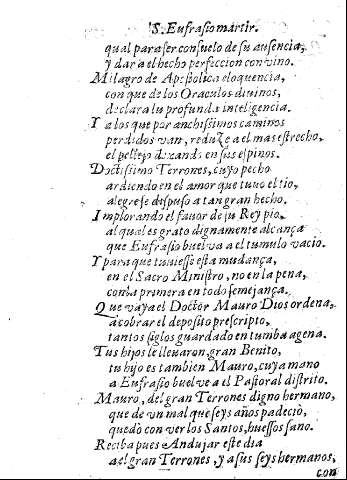 S. Eufrasio martir.
qual para ser consuelo de su ausencia,
y dar a el hecho perfeccion convino.
Milagro de Apostolica eloquencia,
con que de los Oraculos diuinos,
declara tu profunda inteligencia.
Y a los que por anchissimos caminos
perdidos van, reduze a el mas estrecho,
el pellejo dexando en sus espinos.
Doctissimo Terrones, cuyo pecho
ardiendo en el amor que tuuo el tio,
alegre se dispuso a tan gran hecho.
Implorando el fauor de su Rey pio,
al qual es grato dignamente alcança
que Eufrasio buelva a el tumulo vacio.
Y para que tuuiesse esta mudança,
en el Sacro Ministro, no en la pena,
con la primera en todo semejança.
Que vaya el Doctor Mauro Dios ordena,
a cobrar el deposito prescripto,
tantos siglos guardado en tumba agena.
Tus hijos le lleuaron, gran Benito,
tu hijo es tambien Mauro, cuya mano
a Eufrasio buelve a el Pastoral distrito.
Mauro, del gran Terrones digno hermano,
que de vn mal que seys años padeciò,
quedò con ver los Santos, huessos sano.
Reciba pues Andujar este dia
a el gran Terrones, y a sus seys hermanos,
con